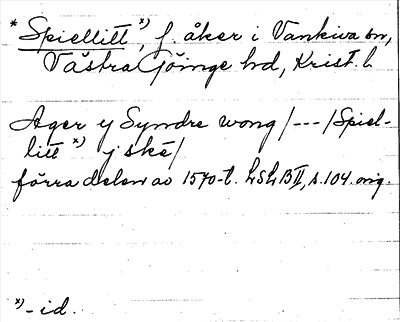 * Spiellitt x), f. åker i Vankiva sn,
Västra Göinge hd, Krist. l.
Ager y Syndre wong /---/ Spiel-
litt x) j skè/
förra delen av 1570-t. LSLB II, s. 104. orig.
x) - id.